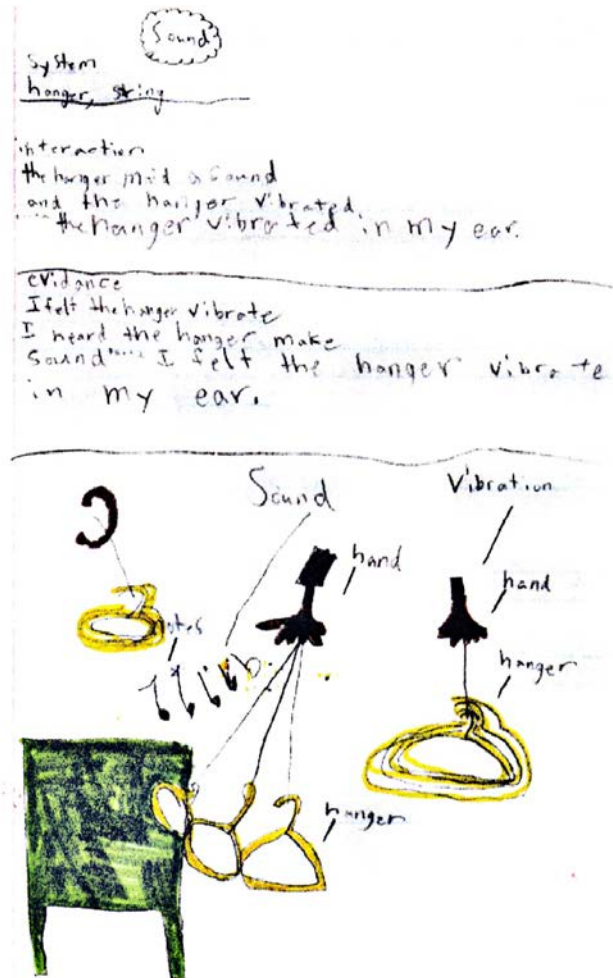 Sound
System
hanger, string
interaction
the hanger mad a sound
and the hanger vibrated
the hanger vibrated in my ear.
evidance
I felt the hanger vibrate
I heard the hanger make
sound I felt the hanger vibrate
in my ear.
Sound
Vibration
hand
hand
hanger
notes
hanger